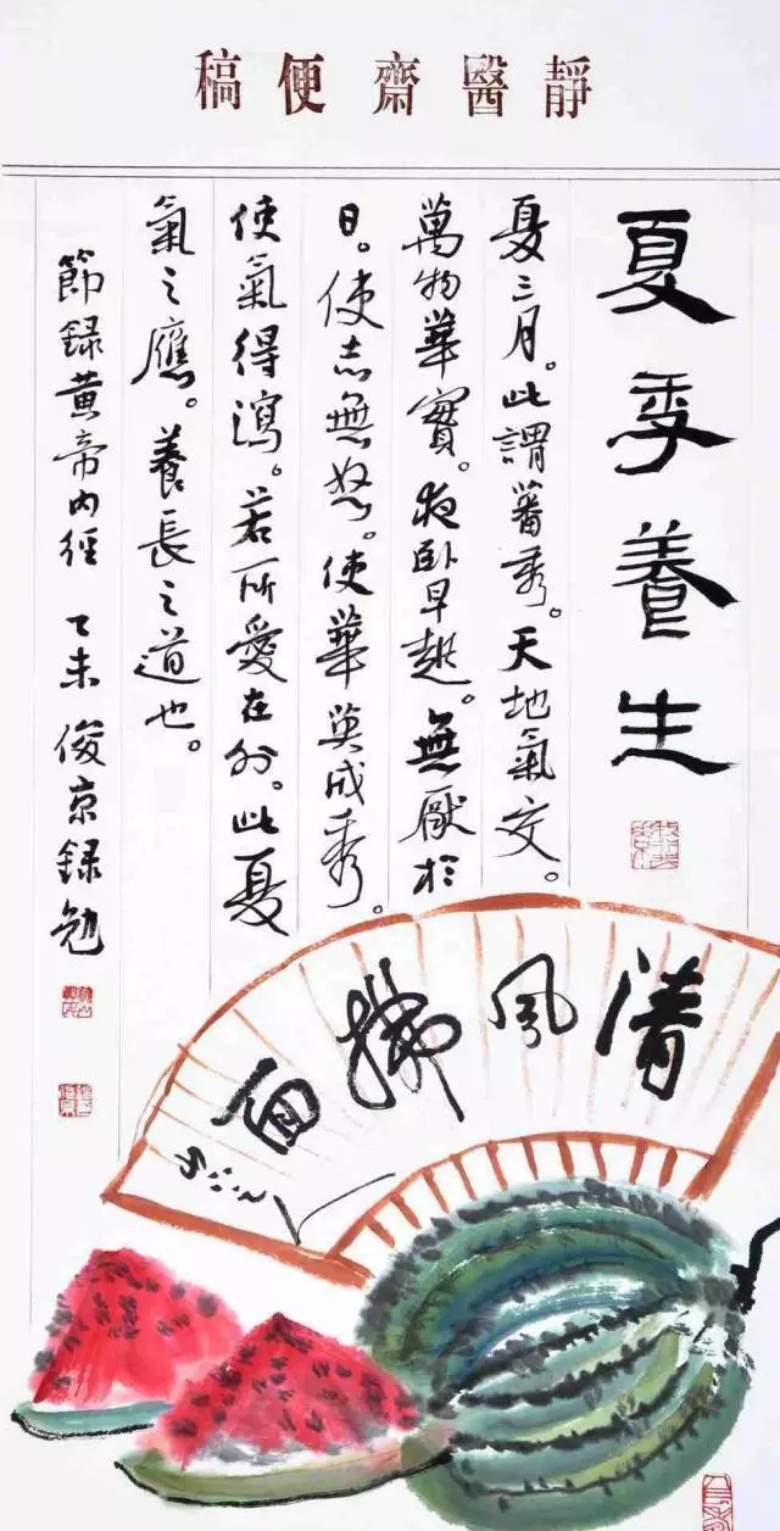 靜醫齋便稿
夏季養生
夏三月。此謂蕃秀。天地氣交。
萬物華實。夜臥早起。無厭於
日。使志無怒。使華英成秀。
使氣得瀉。若所愛在外。此夏
氣之應。養長之道也。
節録黄帝内經 乙未 俊京録勉
清風拂面